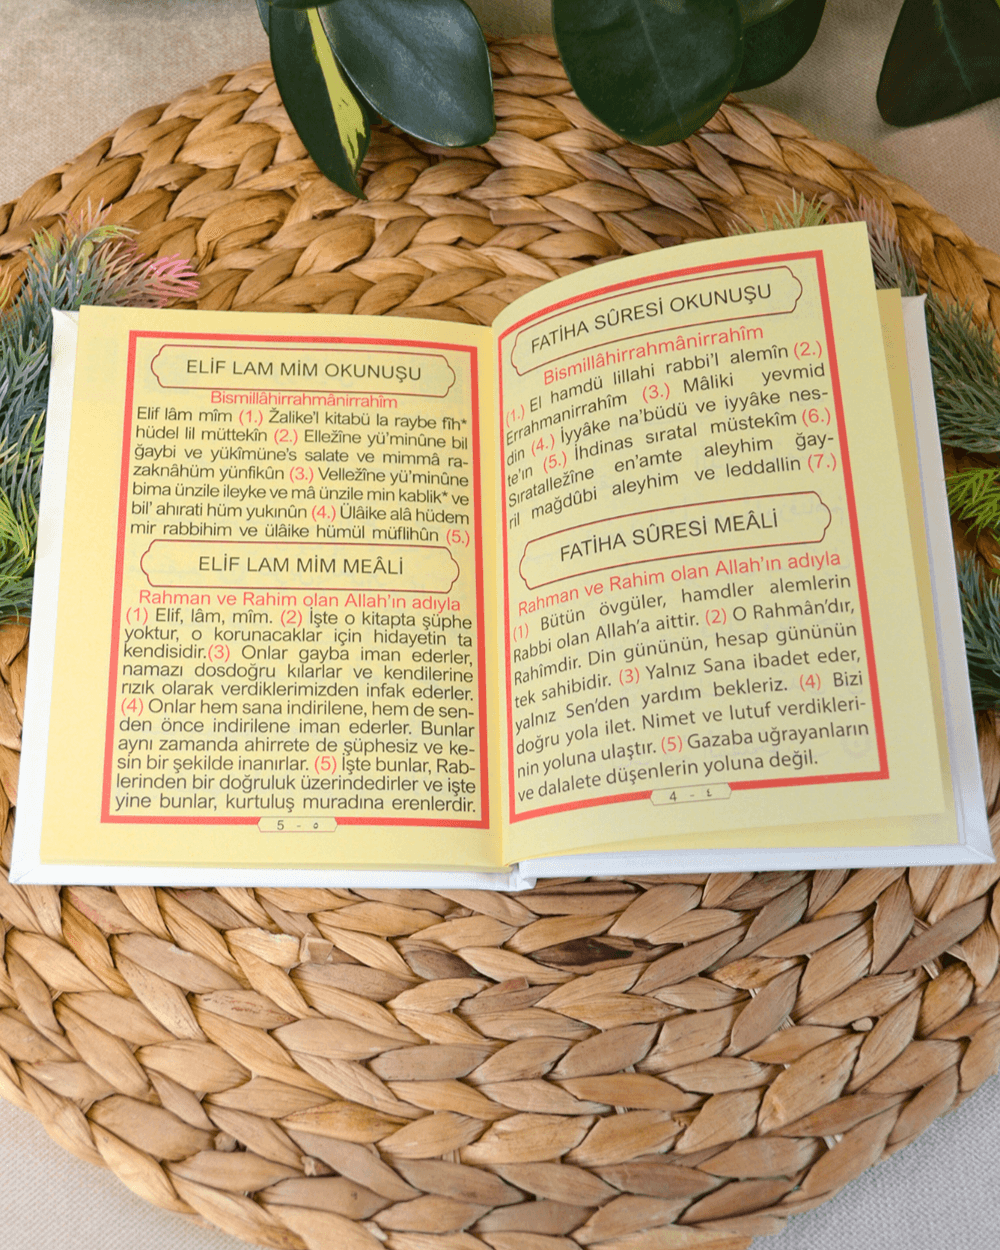 FATİHA SÛRESİ OKUNUŞU
Bismillâhirrahmânirrahîm
(1.) El hamdü lillahi rabbi'l alemîn (2.)
Errahmanirrahîm (3.) Mâliki yevmid
din (4.) İyyâke na'büdü ve iyyâke nes-
te'ın (5.) İhdinas sıratal müstekîm (6.)
Sıratallezîne en'amte aleyhim ğay-
ril mağdûbi aleyhim ve leddallin (7.)
FATİHA SÛRESİ MEÂLİ
Rahman ve Rahim olan Allah'ın adıyla
(1) Bütün övgüler, hamdler alemlerin
Rabbi olan Allah'a aittir. (2) O Rahmân'dır,
Rahîmdir. Din gününün, hesap gününün
tek sahibidir. (3) Yalnız Sana ibadet eder,
yalnız Sen'den yardım bekleriz. (4) Bizi
doğru yola ilet. Nimet ve lutuf verdikleri-
nin yoluna ulaştır. (5) Gazaba uğrayanların
ve dalalete düşenlerin yoluna değil.
4 - ٤
ELİF LAM MİM OKUNUŞU
Bismillâhirrahmânirrahîm
Elif lâm mîm (1.) Žalike'l kitabü la raybe fîh*
hüdel lil müttekîn (2.) Elležîne yü'minûne bil
ğaybi ve yükîmüne's salate ve mimmâ ra-
zaknâhüm yünfikûn (3.) Velležîne yü'minûne
bima ünzile ileyke ve mâ ünzile min kablik* ve
bil' ahırati hüm yukınûn (4.) Ülâike alâ hüdem
mir rabbihim ve ülâike hümül müflihûn (5.)
ELİF LAM MİM MEÂLİ
Rahman ve Rahim olan Allah'ın adıyla
(1) Elif, lâm, mîm. (2) İşte o kitapta şüphe
yoktur, o korunacaklar için hidayetin ta
kendisidir.(3) Onlar gayba iman ederler,
namazı dosdoğru kılarlar ve kendilerine
rızık olarak verdiklerimizden infak ederler.
(4) Onlar hem sana indirilene, hem de sen-
den önce indirilene iman ederler. Bunlar
aynı zamanda ahirrete de şüphesiz ve ke-
sin bir şekilde inanırlar. (5) İşte bunlar, Rab-
lerinden bir doğruluk üzerindedirler ve işte
yine bunlar, kurtuluş muradına erenlerdir.
5 - ٥